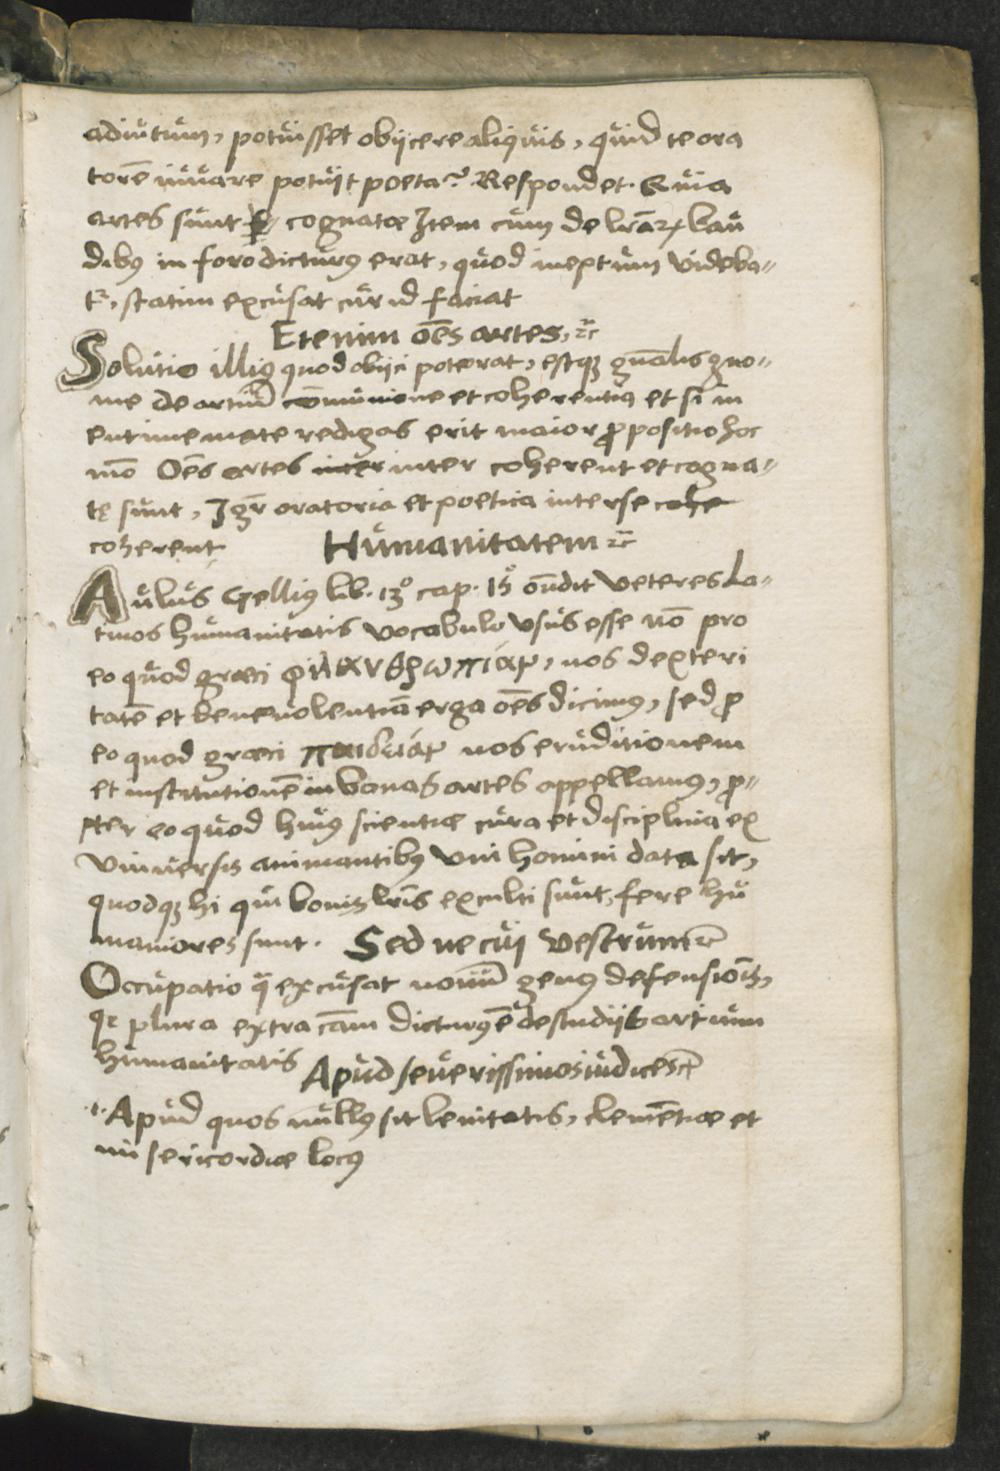 adiutum, potuisset obijcere aliquis, quid te ora
torē iuuare potuit poeta? Respondet. Quia
artes sunt cognatæ Item cum de lr̄aꝝ lau
dibꝰ in foro dicturꝰ erat, quod ineptum videba-
tᷣ, statim excusat cur id faciat
Etenim oēs artes, ⁊c̄
Solutio illiꝰ quod obijci poterat, estqꝫ gn̄alis gno-
me de artiū cōmunione et coherentia et si in
entimemate redigas erit maior ꝓpositio hoc
mō Oēs artes inter inter coherent et cogna-
tę sunt, Igr̄ oratoria et poetica inter se cohe
coherent Humanitatem ⁊c̄
Aulus Gelliꝰ lib. 13° cap. 15° on̄dit veteres La-
tinos humanitatis vocabulo vsus esse nō pro
eo quod græci φιλανθρωπίαν, nos dexteri
tatē et beneuolentiā erga oēs dicimꝰ, sed ꝓ
eo quod græci παιδείαν nos eruditionem
et institutionē in bonas artes appellamꝰ, ꝓ-
pter eo quod huiꝰ scientiæ cura et disciplina ex
vniuersis animantibꝰ vni homini data sit,
quodqꝫ hi qui bonis lr̄is exculti sunt, fere hu
maniores sunt. Sed ne cui vestrum ⁊c̄
Occupatio q̄ excusat nouū genꝰ defensiōis,
qꝫ plura extra cām dicturꝰ ē de studijs artium
humanitatis Apud seuerissimos iudices ⁊c̄
.i. Apud quos nullꝰ sit lenitatis, clemētiæ et
misericordiæ locꝰ